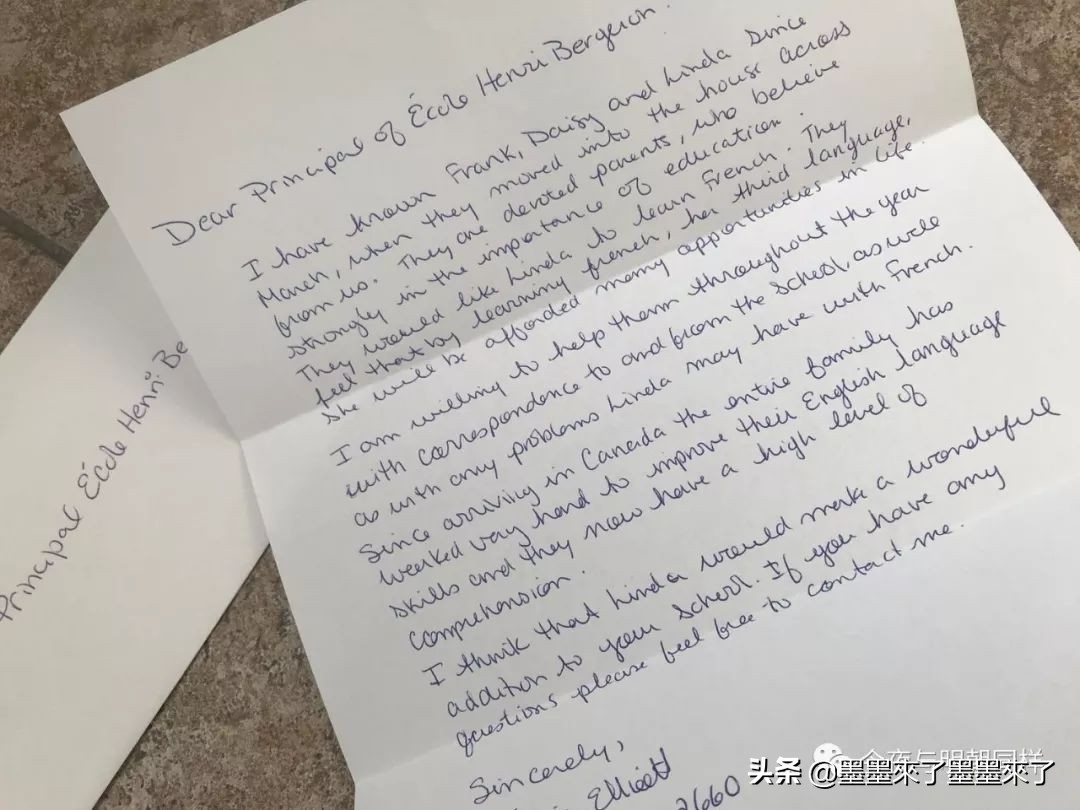 Dear Principal of École Henri Bergeron.
I have known Frank, Daisy and Linda since
March, when they moved into the house across
from us. They are devoted parents, who believe
strongly in the importance of education.
They would like Linda to learn French. They
feel that by learning french, her third language,
she will be afforded many opportunities in life.
I am willing to help them throughout the year
with correspondence to and from the school, as well
as with any problems Linda may have with French.
Since arriving in Canada the entire family has
worked very hard to improve their English language
skills and they now have a high level of
comprehension.
I think that Linda would make a wonderful
addition to your school. If you have any
questions please feel free to contact me.
Sincerely,
Elliott
2660
Principal École Henri Be
今夜与明朝同样
头条 @墨墨來了墨墨來了